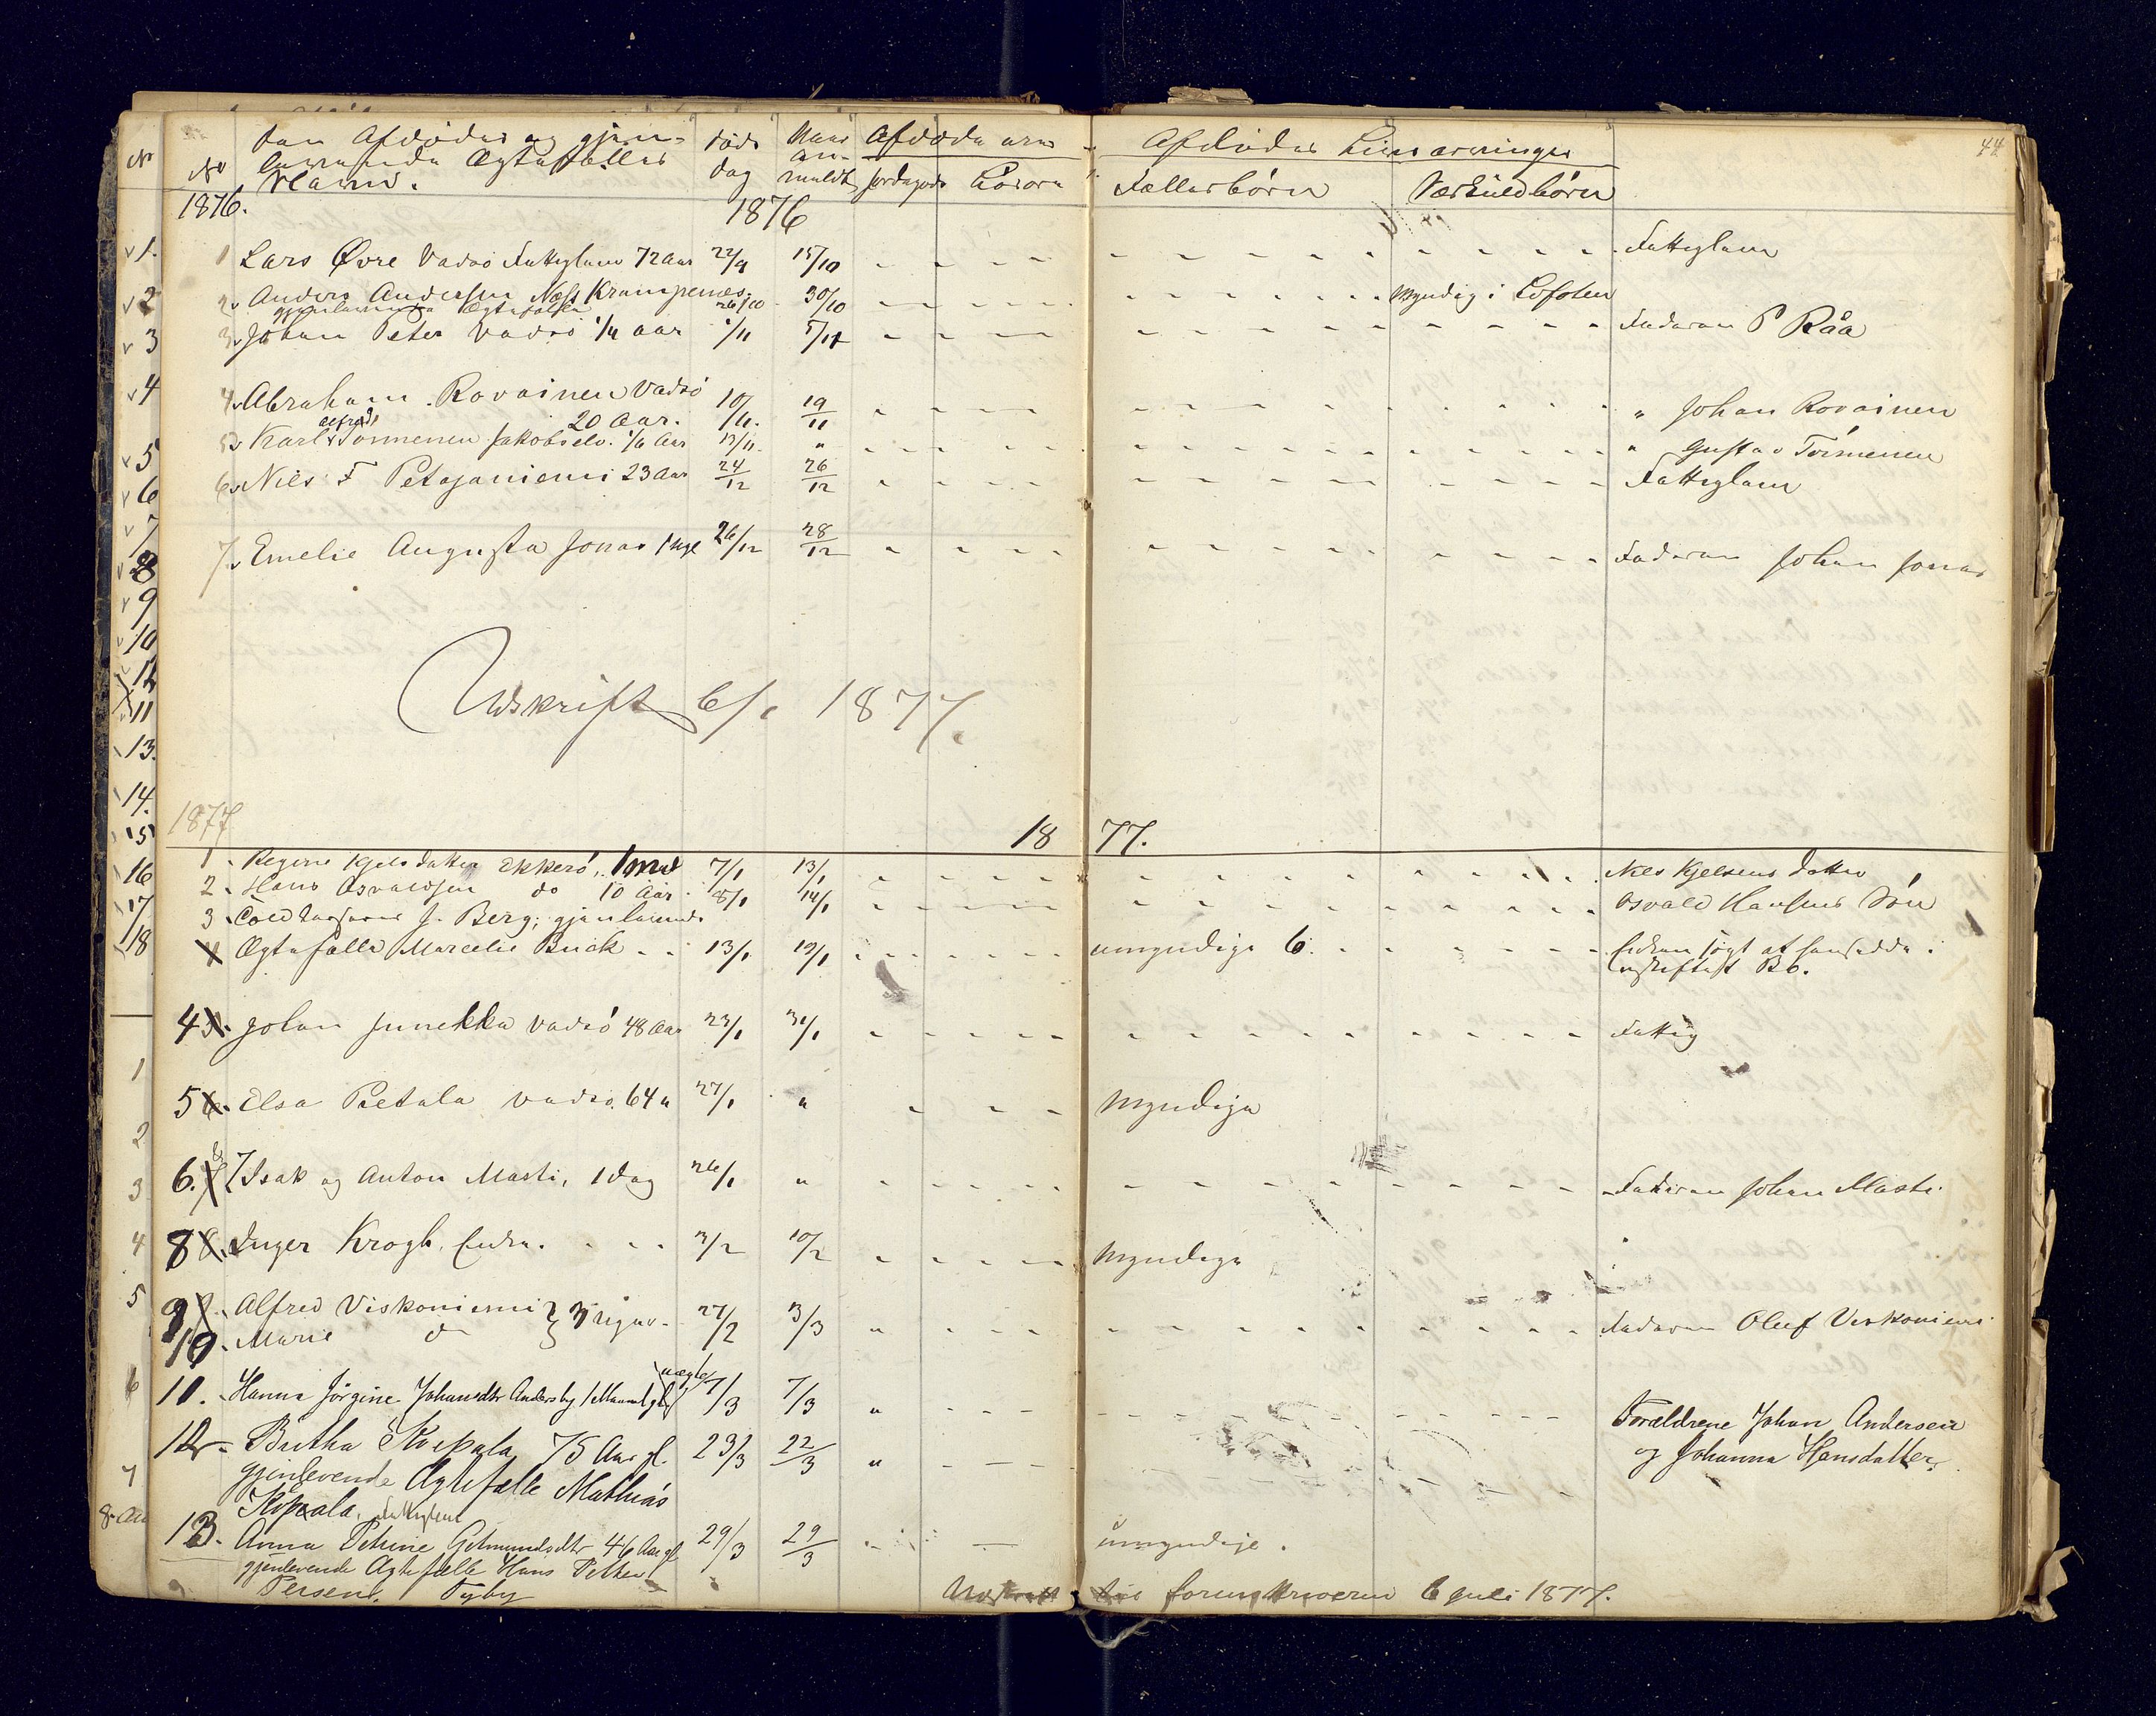 44
No
No
den Afdødes og gjen-
levende Ægtefælles
Navn.
døds
dag
Naar
an-
meldt
Afdøde ern
Jordegods
Lösöre
Afdödes Livsarvinger
Fællesbörn
Særkuldbörn
1876.
1876
1 Lars Øvre Vadsö Fattiglem 72 Aar 22/9 15/10 - - - - Fattiglem
2 Anders Andersen Næss Krampenes. 26/10 30/10 - - - - Myndig i Lofoten
gjenlevende Ægtefælle
3 Johan Peter Vadsö 1/4 aar 1/11 5/11 - - - - Faderen P Råa
4 Abraham Rovainen Vadsö
20 Aar. 10/11. 19/11 - - - - " Johan Rovainen
Alfred
5 Karl Tormenen Jakobselv. 1/6 Aar 13/11. " - - - - " Gustav Törmenen
6 Nils F Petajaniemi 23 Aar 24/12 26/12 - - - - Fattiglem
7 Emelie Augusta Jonas 1 Uge 26/12 28/12 - - - - Faderen Johan Jonas
Udskrift 6/1 1877.
1877
1877.
1. Regine Kjelsdatter Ekkerö, 1 7/1 13/1 - - - - Nils Kjelsens datter
2. Hans Osvaldsen do 10 Aar 8/1 14/1 - - - - Osvald Hansens Sön
3. J. Berg; gjenlevende
4 Ægtefælle Marcelie Buck - - 13/1 19/1 - - - - umyndige 6. - - Enken søgt at hensidde i
uskiftet Bo.
4 Johan Junekka Vadsö 48 Aar 23/1 31/1 - - - - Fattig
5 6. Elsa Pietala Vadsö. 64 " 27/1 " - - - Myndige
6. 7 Isak og Anton Masti, 1 dag 26/1 " - - - - Faderen Johan Masti.
8 Inger Krogh, Enke. - - - 3/2 10/2 - - - - Myndige
9 Alfred Viskoniemi } 3 Uger - 27/2 3/3 " - - - Faderen Oluf Viskoniemi
10. Marie do
uægte
11. Hanna Jörgine Johansdtr Andersby 1 Maaned gl. 7/3 7/3 " - - - Forældrene Johan Andersen
og Johanna Hansdatter.
12 - Britha Kopala 75 Aar gl. 23/3 22/3 " - - -
gjenlevende Ægtefælle Mathias
Kopala. Fattiglem
13. Anna Petrine 46 Aar gl 29/3 29/3 - - - umyndige.
gjenlevende Ægtefælle Hans Petter
Persen. Tyby
6 Juli 1877.
1.
2
3
4
5
6
7
8
9
10
12
11
13.
14.
15
16
17
18
1
2
3
4
5
6
7
8.